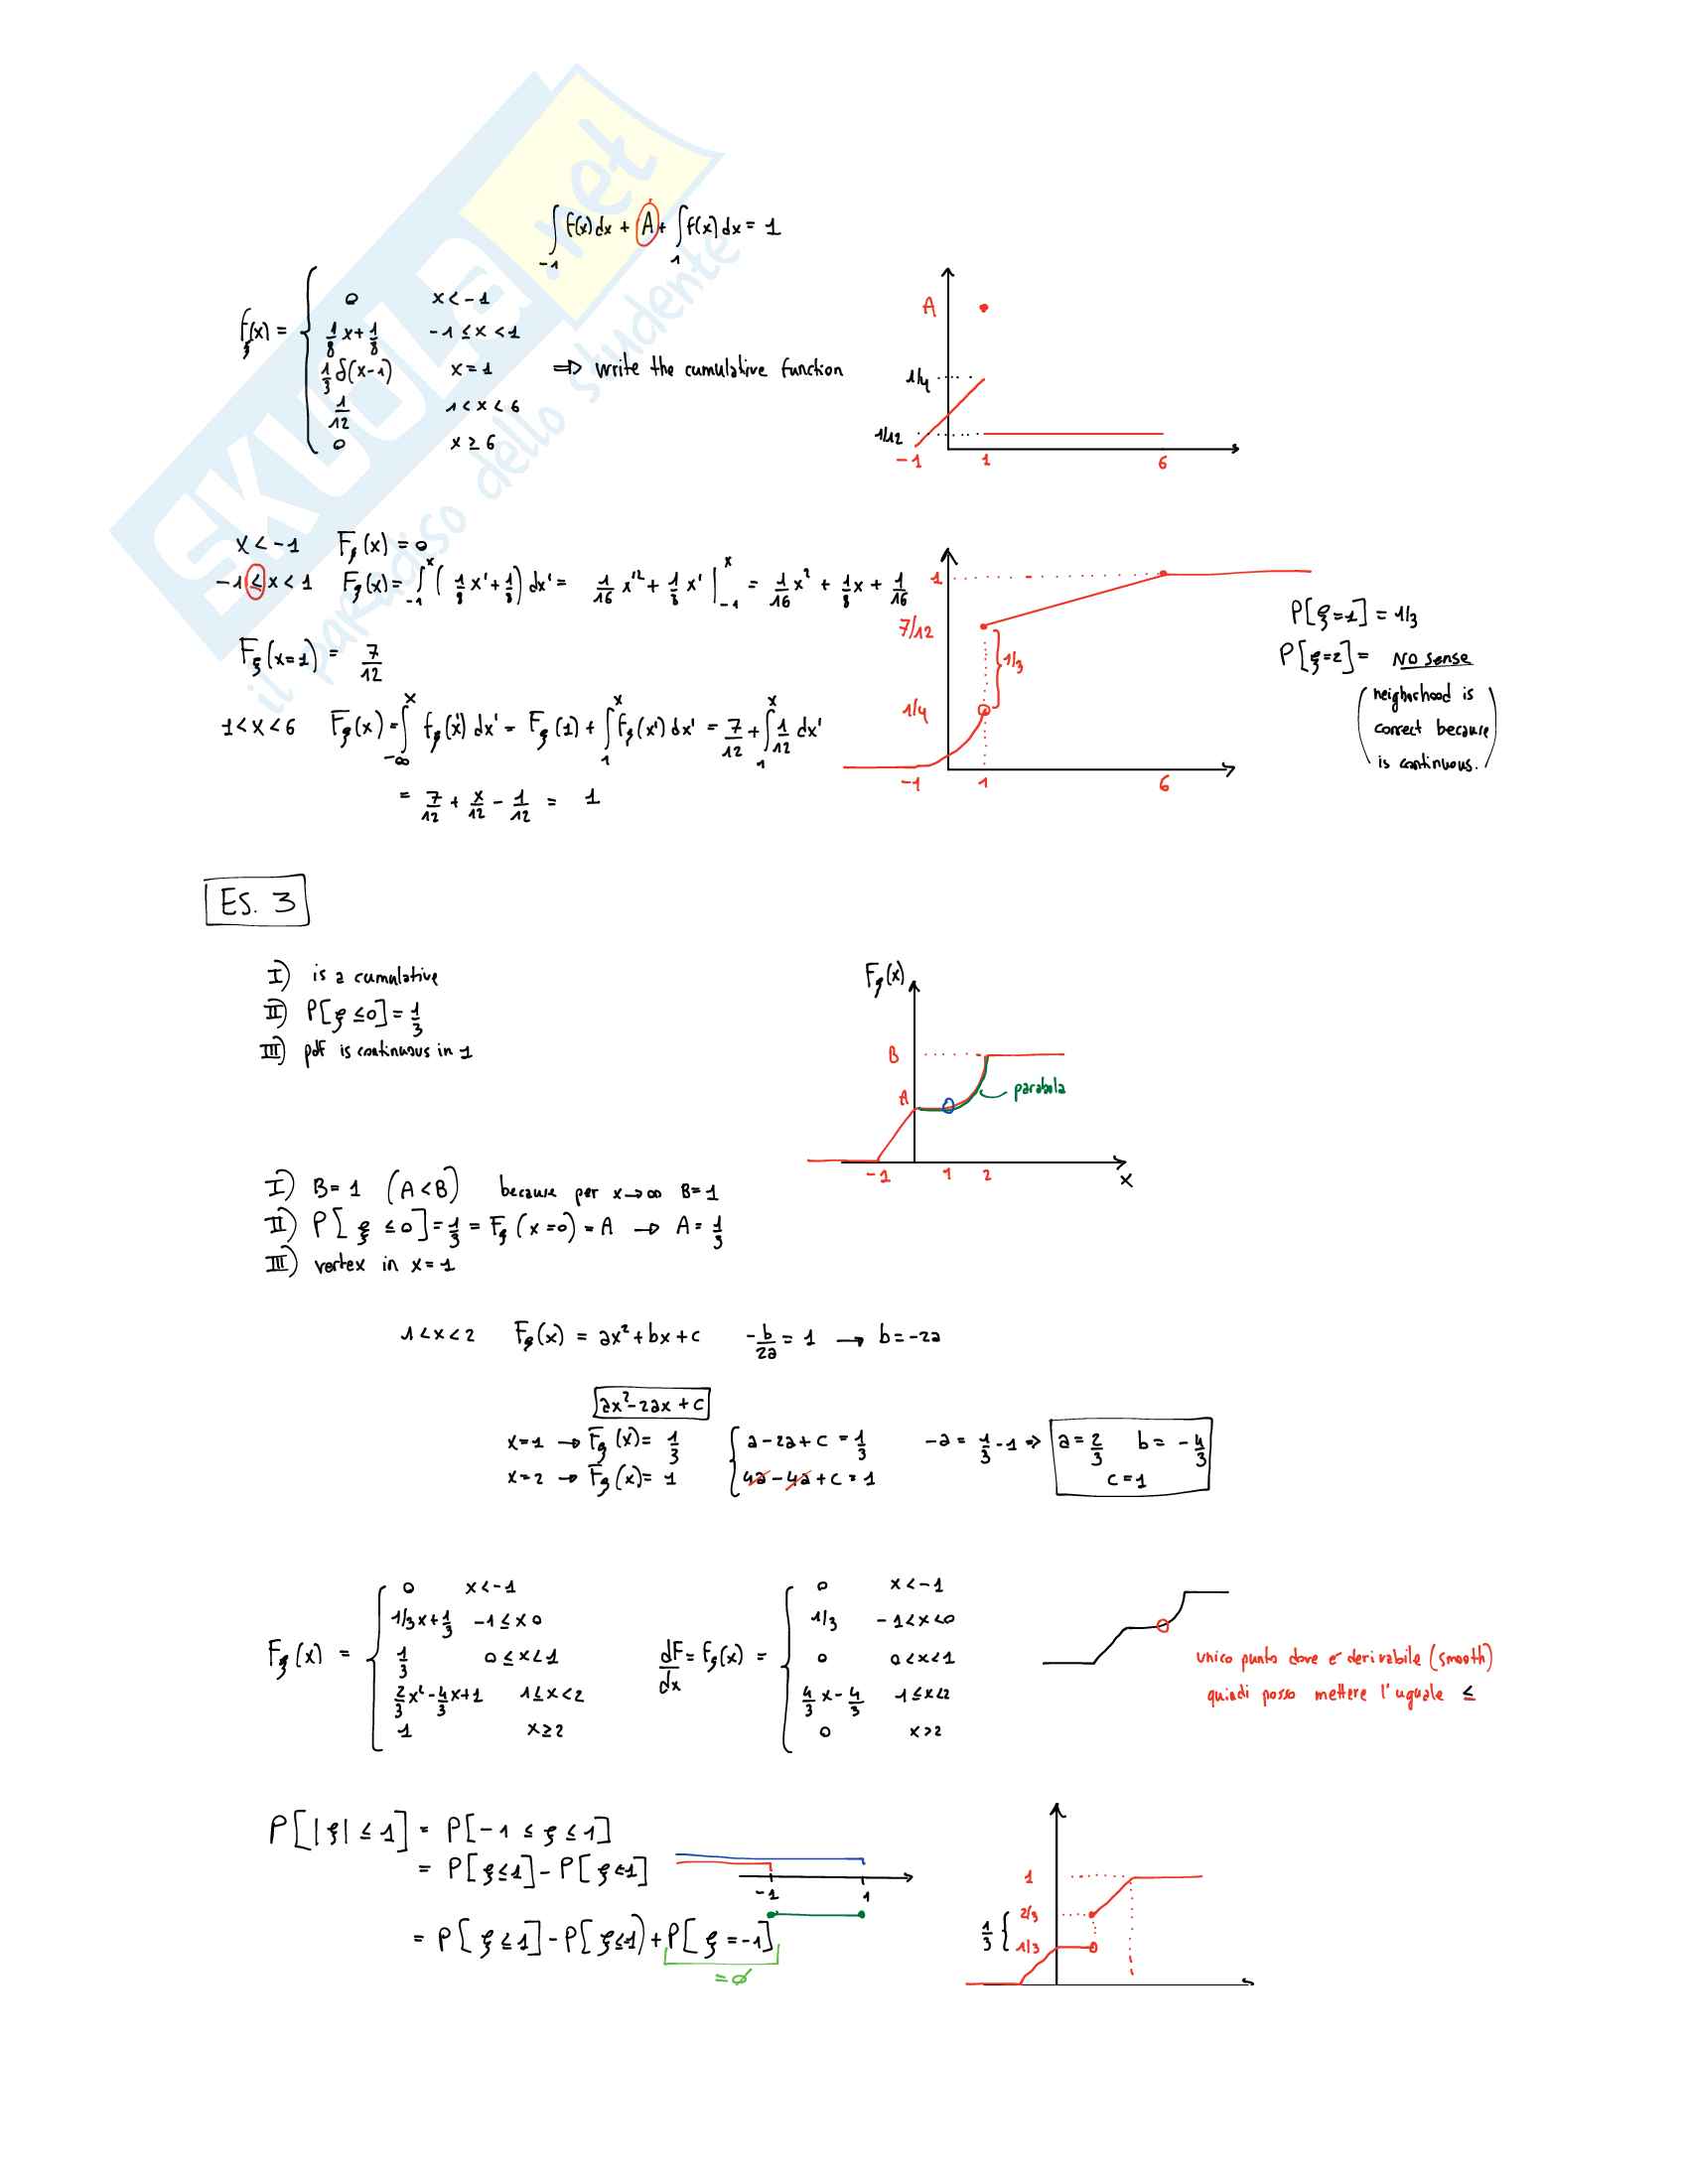 SKUOLA.net
il paradiso dello studente
∫_{-1} f(x)dx + A + ∫_1 f(x)dx = 1
f_ξ(x) = { 0 x<-1
1/8 x + 1/8 -1≤x<1
1/3 δ(x-1) x=1 ⇒ write the cumulative function
1/12 1<x<6
0 x≥6
A
1/4
1/12
-1 1 6
x<-1 F_ξ(x) = 0
-1≤x<1 F_ξ(x) = ∫_{-1}^x (1/8 x' + 1/8) dx' = 1/16 x'² + 1/8 x' |_{-1}^x = 1/16 x² + 1/8 x + 1/16
F_ξ(x=1) = 7/12
1<x<6 F_ξ(x) = ∫_{-∞}^x f_ξ(x') dx' = F_ξ(1) + ∫_1^x f_ξ(x') dx' = 7/12 + ∫_1^x 1/12 dx'
= 7/12 + x/12 - 1/12 = 1
1
7/12
1/3
1/4
-1 1 6
P[ξ=1] = 1/3
P[ξ=2] = NO sense
(neighorhood is
correct because
is continuous.)
ES. 3
I) is a cumulative
II) P[ξ≤0] = 1/3
III) pdf is continuous in 1
F_ξ(x)
B
A
parabola
-1 1 2 x
I) B=1 (A<B) because per x→∞ B=1
II) P[ξ≤0] = 1/3 = F_ξ(x=0) = A → A = 1/3
III) vertex in x=1
1<x<2 F_ξ(x) = ax²+bx+c -b/2a = 1 → b=-2a
ax²-2ax+c
x=1 → F_ξ(x) = 1/3 { a-2a+c = 1/3 -a = 1/3 - 1 ⇒ a = 2/3 b = -4/3
x=2 → F_ξ(x) = 1 4a-4a+c = 1 c=1
F_ξ(x) = { 0 x<-1
1/3x+1/3 -1≤x 0
1/3 0≤x<1
2/3x²-4/3x+1 1≤x<2
1 x≥2
dF/dx = f_ξ(x) = { 0 x<-1
1/3 -1<x<0
0 0<x<1
4/3x-4/3 1≤x<2
0 x>2
unico punto dove e' derivabile (smooth)
quindi posso mettere l'uguale ≤
P[|ξ|≤1] = P[-1≤ξ≤1]
= P[ξ≤1] - P[ξ<1]
-1 1
= P[ξ≤1] - P[ξ≤1) + P[ξ=-1]
=∅
1
2/3
1/3
1/3